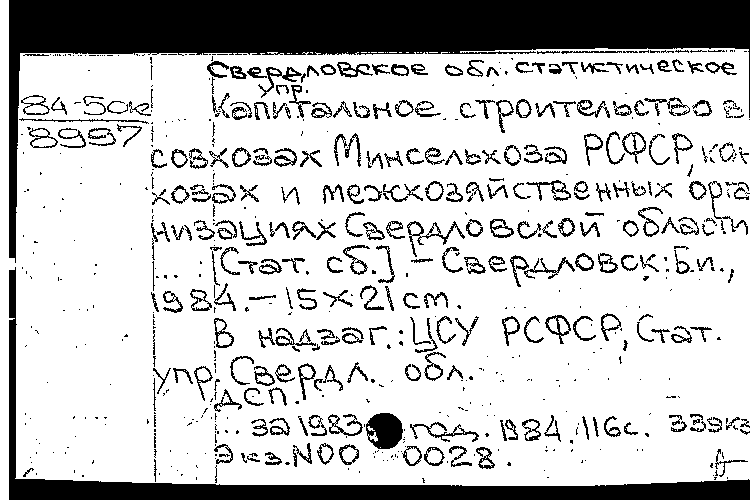 Свердловское обл. статистическое
упр.
84-5ок
8997
Капитальное строительство в
совхозах Минсельхоза РСФСР, кол
хозах и межхозяйственных орга
низациях Свердловской области
... [Стат. сб.]. - Свердловск: Б.и.,
1984. - 15 X 21 cm.
В надзаг.: ЦСУ РСФСР, Стат.
упр. Свердл. обл.
ДСП.
... за 1983 год. 1984. 116с. 33экз
Экз. N00 0028.